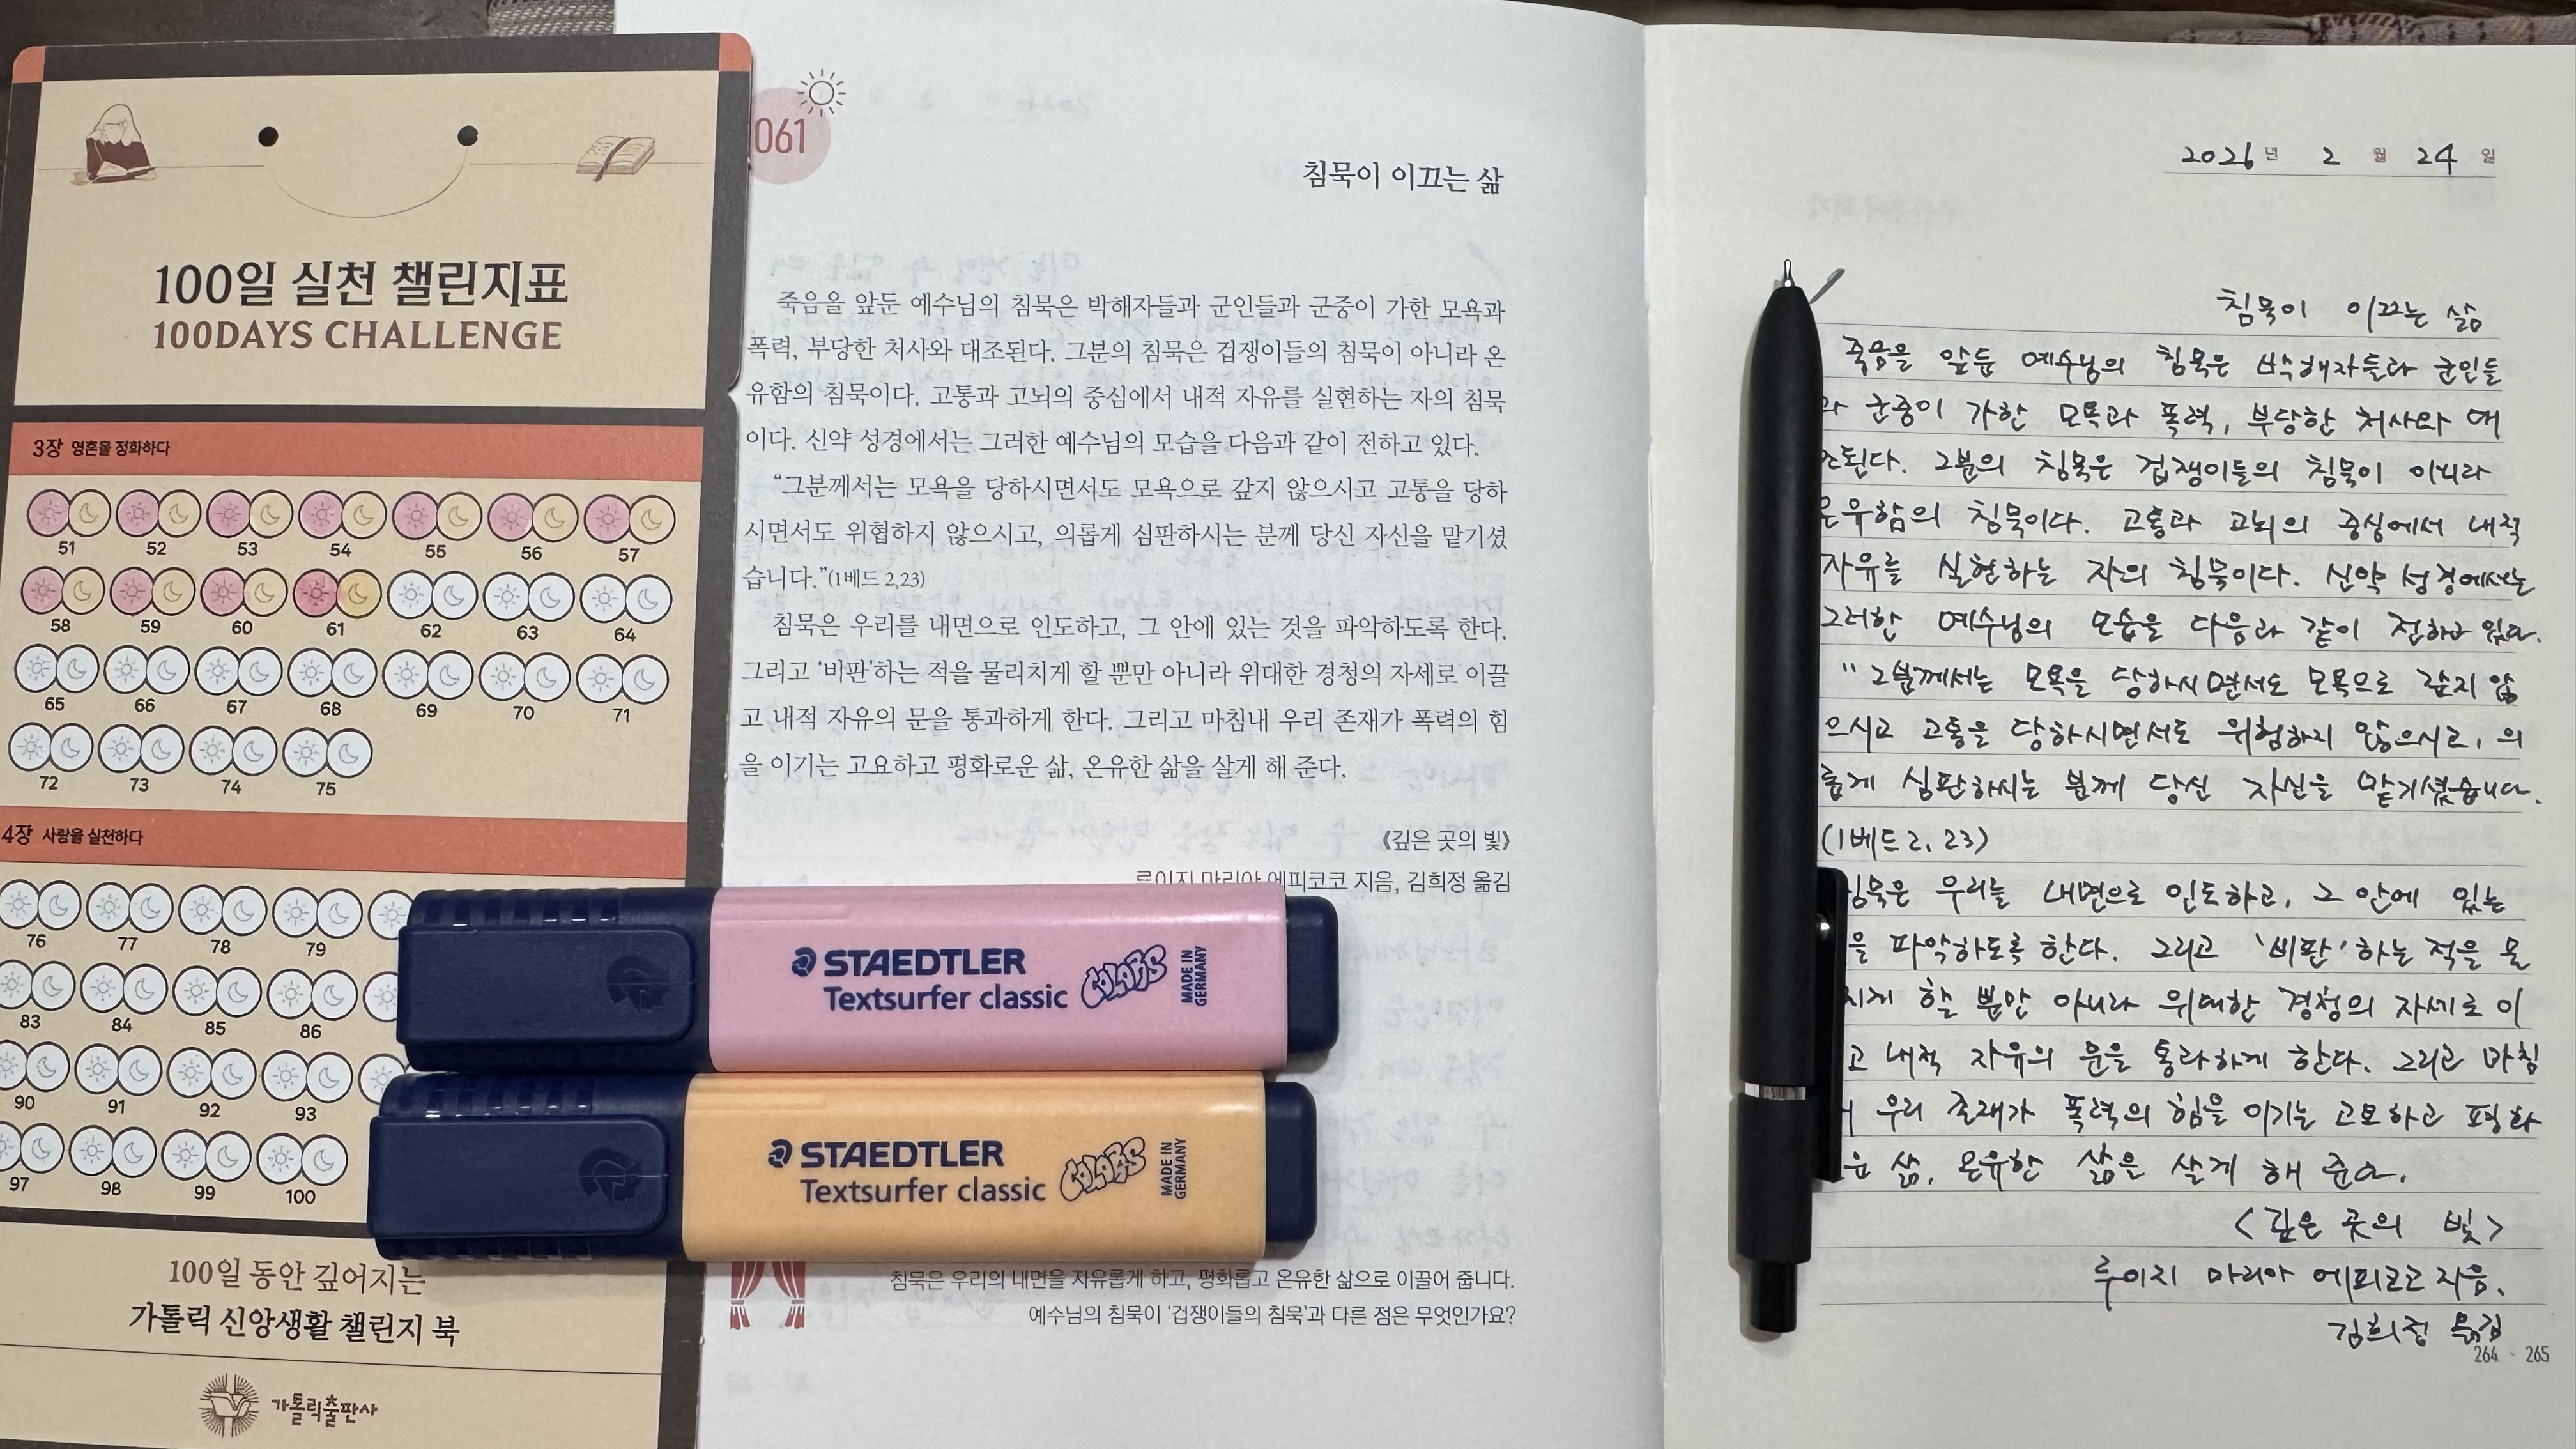 100일 실천 챌린지표
100DAYS CHALLENGE
3장 영혼을 정화하다
51 52 53 54 55 56 57
58 59 60 61 62 63 64
65 66 67 68 69 70 71
72 73 74 75
4장 사랑을 실천하다
76 77 78 79
83 84 85 86
90 91 92 93
97 98 99 100
100일 동안 깊어지는
가톨릭 신앙생활 챌린지 북
가톨릭출판사
061
침묵이 이끄는 삶
죽음을 앞둔 예수님의 침묵은 박해자들과 군인들과 군중이 가한 모욕과
폭력, 부당한 처사와 대조된다. 그분의 침묵은 겁쟁이들의 침묵이 아니라 온
유함의 침묵이다. 고통과 고뇌의 중심에서 내적 자유를 실현하는 자의 침묵
이다. 신약 성경에서는 그러한 예수님의 모습을 다음과 같이 전하고 있다.
“그분께서는 모욕을 당하시면서도 모욕으로 갚지 않으시고 고통을 당하
시면서도 위협하지 않으시고, 의롭게 심판하시는 분께 당신 자신을 맡기셨
습니다.”(1베드 2,23)
침묵은 우리를 내면으로 인도하고, 그 안에 있는 것을 파악하도록 한다.
그리고 ‘비판’하는 적을 물리치게 할 뿐만 아니라 위대한 경청의 자세로 이끌
고 내적 자유의 문을 통과하게 한다. 그리고 마침내 우리 존재가 폭력의 힘
을 이기는 고요하고 평화로운 삶, 온유한 삶을 살게 해 준다.
《깊은 곳의 빛》
루이지 마리아 에피코코 지음, 김희정 옮김
STAEDTLER
Textsurfer classic
COLORS
MADE IN
GERMANY
STAEDTLER
Textsurfer classic
COLORS
MADE IN
GERMANY
침묵은 우리의 내면을 자유롭게 하고, 평화롭고 온유한 삶으로 이끌어 줍니다.
예수님의 침묵이 ‘겁쟁이들의 침묵’과 다른 점은 무엇인가요?
2026년 2월 24일
침묵이 이끄는 삶
죽음을 앞둔 예수님의 침묵은 박해자들과 군인들
과 군중이 가한 모욕과 폭력, 부당한 처사와 대
조된다. 그분의 침묵은 겁쟁이들의 침묵이 아니라
온유함의 침묵이다. 고통과 고뇌의 중심에서 내적
자유를 실현하는 자의 침묵이다. 신약 성경에서는
그러한 예수님의 모습을 다음과 같이 전하고 있다.
"그분께서는 모욕을 당하시면서도 모욕으로 갚지 않
으시고 고통을 당하시면서도 위협하지 않으시고, 의
롭게 심판하시는 분께 당신 자신을 맡기셨습니다.
(1베드 2, 23)
침묵은 우리를 내면으로 인도하고, 그 안에 있는
을 파악하도록 한다. 그리고 '비판'하는 적을 물
치게 할 뿐만 아니라 위대한 경청의 자세로 이
고 내적 자유의 문을 통과하게 한다. 그리고 마침
우리 존재가 폭력의 힘을 이기는 고요하고 평화
운 삶, 온유한 삶을 살게 해 준다.
<깊은 곳의 빛>
루이지 마리아 에피코코 지음,
김희정 옮김
264 · 265